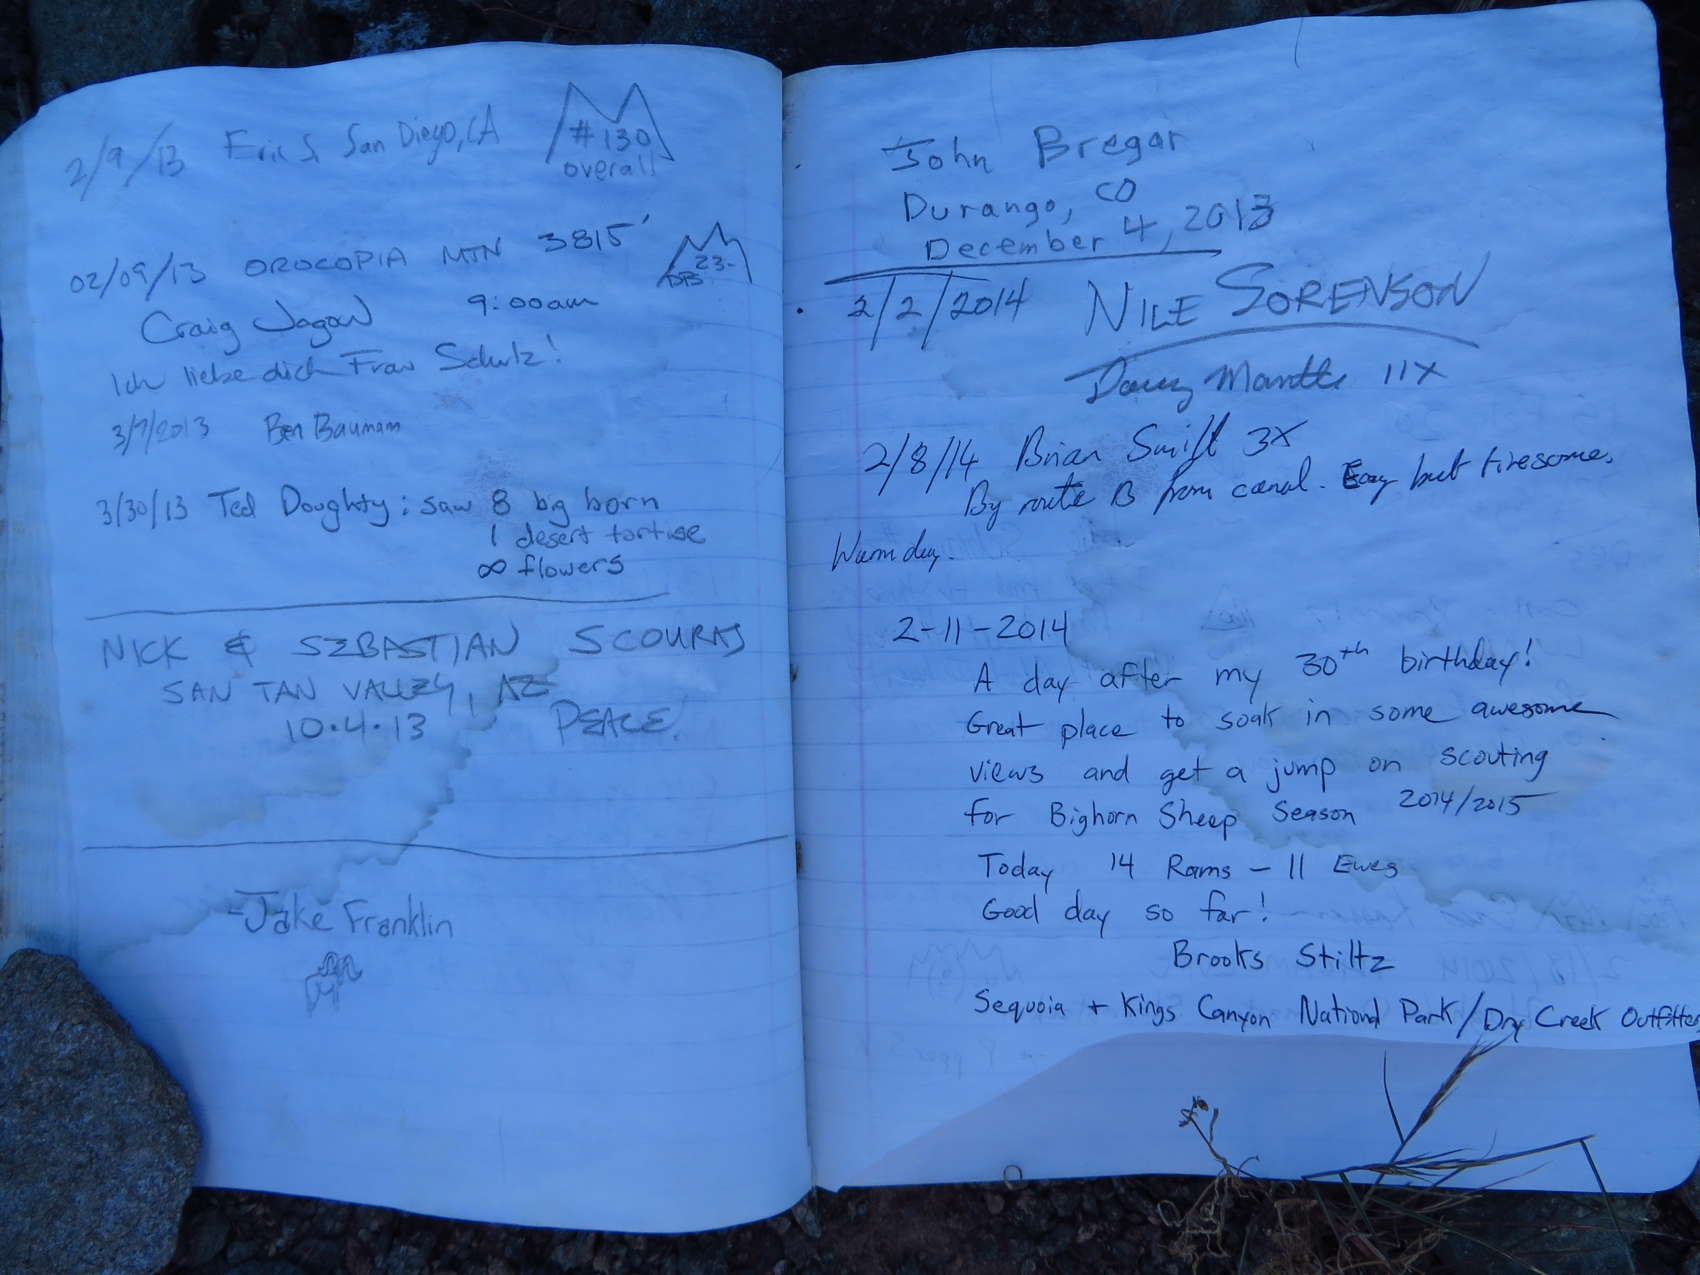 2/9/13 Eric S. San Diego, CA
#130
overall
02/09/13 OROCOPIA MTN 3815'
23
Craig Jagow 9:00am
Ich liebe dich Frau Schulz!
3/7/2013 Ben Baumann
3/30/13 Ted Doughty: saw 8 big born
1 desert tortise
∞ flowers
NICK & SEBASTIAN SCOURAS
SAN TAN VALLEY, AZ
10.4.13 PEACE!
-Jake Franklin
John Bregar
Durango, CO
December 4, 2013
2/2/2014 NILE SORENSON
Doug Mantle 11X
2/8/14 Brian Smith 3X
By route B from canal. Easy but tiresome.
Warm day.
2-11-2014
A day after my 30th birthday!
Great place to soak in some awesome
views and get a jump on scouting
for Bighorn Sheep Season 2014/2015
Today 14 Rams - 11 Ewes
Good day so far!
Brooks Stiltz
Sequoia + Kings Canyon National Park/Dry Creek Outfitters